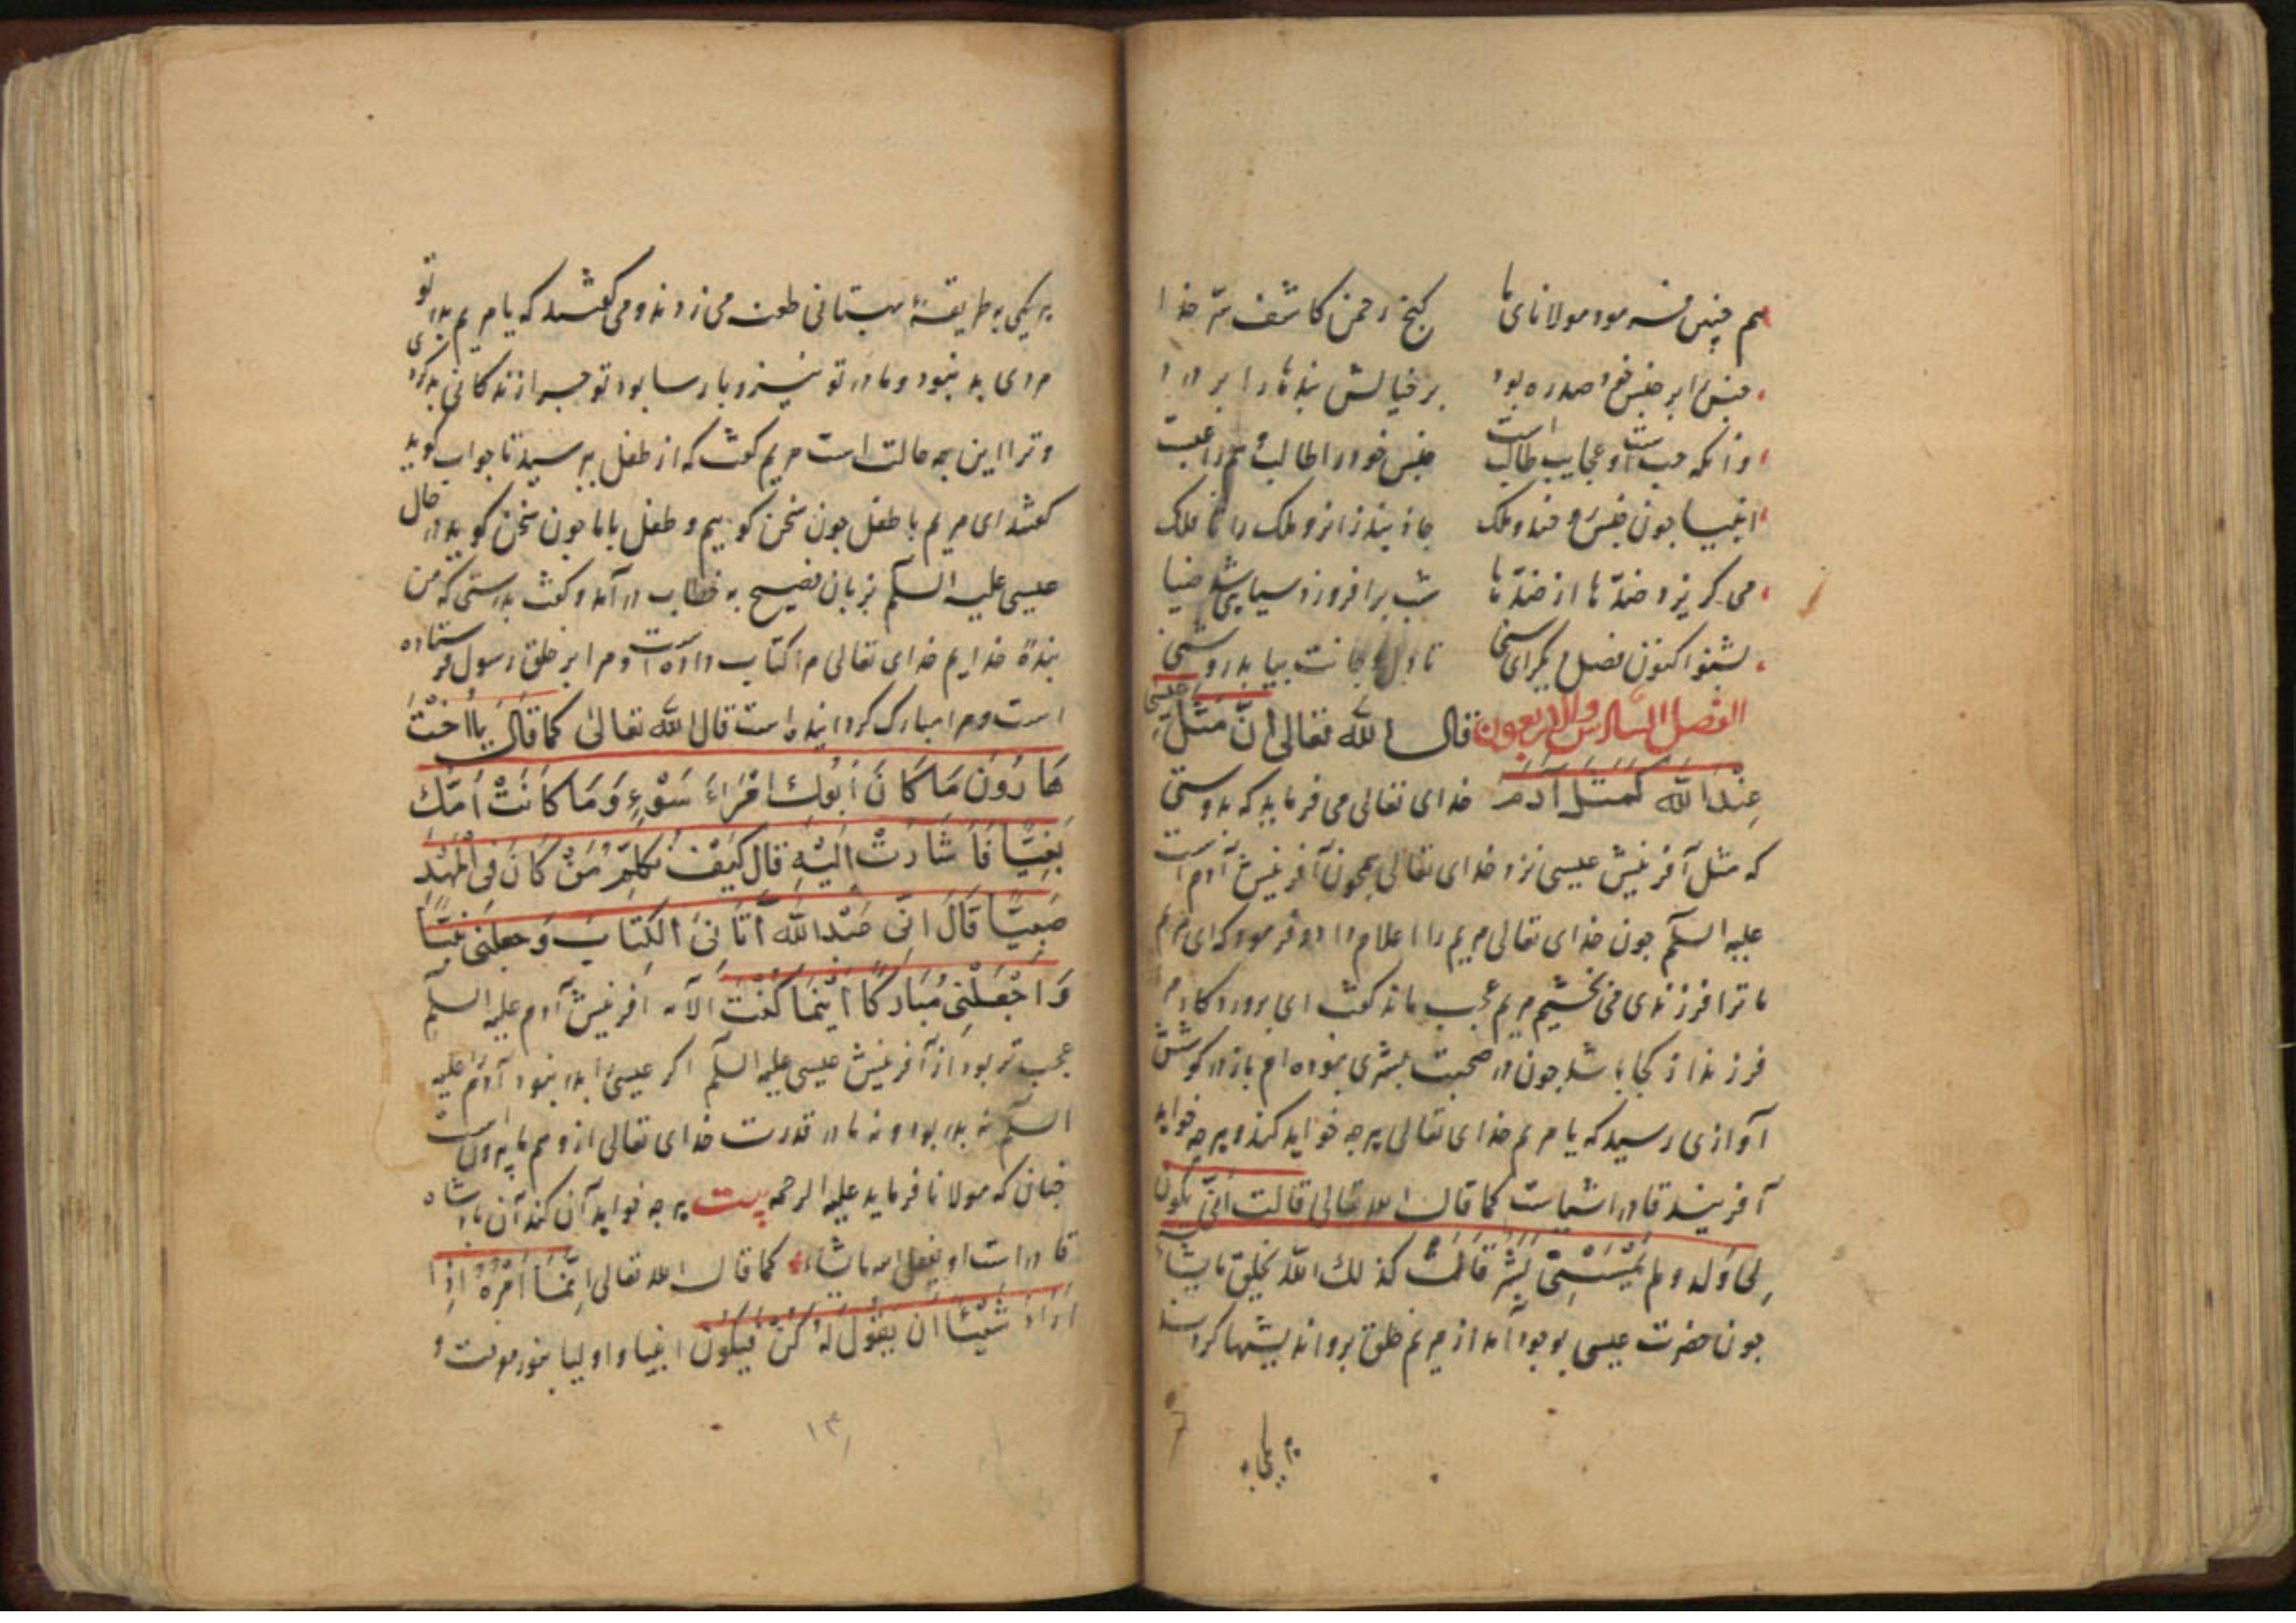 هم چنین فرمود مولانای ما گنج رحمن کاشف سر خدا
جنس را بر جنس صدره بود بر خیالش بندها را بر درد
وانکه جنبست او عجایب طالب است جنس خود را طالب هم راغبست
انبیا چون جنس و ضد و ملک جاذبند زانرو ملک را تا فلک
می کریزد ضدّ ها از ضدّ ها شب برافروزد سیاهی ضیا
بشنو اکنون فصل دیکر ای سنی تا دل و جانت بیابد روشنی
الفصل السادس والاربعون قال الله تعالی انّ مثل عیسی
عند الله کمثل آدم خدای تعالی می فرماید که بدرستی
که مثل آفرینش عیسی نزد خدای تعالی همچون آفرینش آدم است
علیه السلم جون خدای تعالی مریم را اعلام داد و فرمود که ای مریم
ما ترا فرزندی می بخشیم مریم عجب ماند کفت ای پروردکارم
فرزند از کجا باشد جون در صحبت بشری نبوده ام باز در کوشش
آوازی رسید که یا مریم خدای تعالی هرچه خواهد کند و هرچه خواهد
آفریند قادر اشیاست کما قال الله تعالی قالت انّی یکون
لی ولد ولم یمسسنی بشر قال کذلك الله یخلق ما یشاء
جون حضرت عیسی بوجود آمد از مریم خلق برو اندیشها کردند
هر یکی به
هر یکی به طریقۀ بهتانی طعن می زدند و می کفتند که یا مریم پدر تو
مردی بد نبود و مادر تو نیز و پارسا بود تو چرا زندکانی بد کردی
و ترا این چه حالت است مریم کفت که از طفل بپرسید تا جواب کوید
کفتند ای مریم با طفل جون سخن کوییم و طفل باما جون سخن کوید در حال
عیسی علیه السلم بزبان فصیح به خطاب در آمد و کفت بدرستی که من
بندۀ خدایم خدای تعالی مرا کتاب داده است و مرا بر خلق رسول فرستاده
است و مرا مبارک کردانیده است قال الله تعالی کما قال یا اخت
هارون ما کان ابوك امراء سوء وما کانت امّك
بغیّا فاشارت الیه قال کیف نکلّم من کان فی المهد
صبیّا قال انّی عبد الله آتانی الکتاب وجعلنی نبیّا
واجعلنی مبارکا اینما کنت الآیه آفرینش آدم علیه السلم
عجب تر بود از آفرینش عیسی علیه السلم اکر عیسی را پدر نبود آدم علیه
السلم نه پدر بود و نه مادر قدرت خدای تعالی از وهم ما بیرونست
چنان که مولانا فرماید علیه الرحمه بیت هرچه خواهد آن کند آن پادشاه
قادر است او یفعل الله ما یشاء کما قال الله تعالی انّما امره اذا
اراد شیئا ان یقول له کن فیکون انبیا و اولیا
۱۳